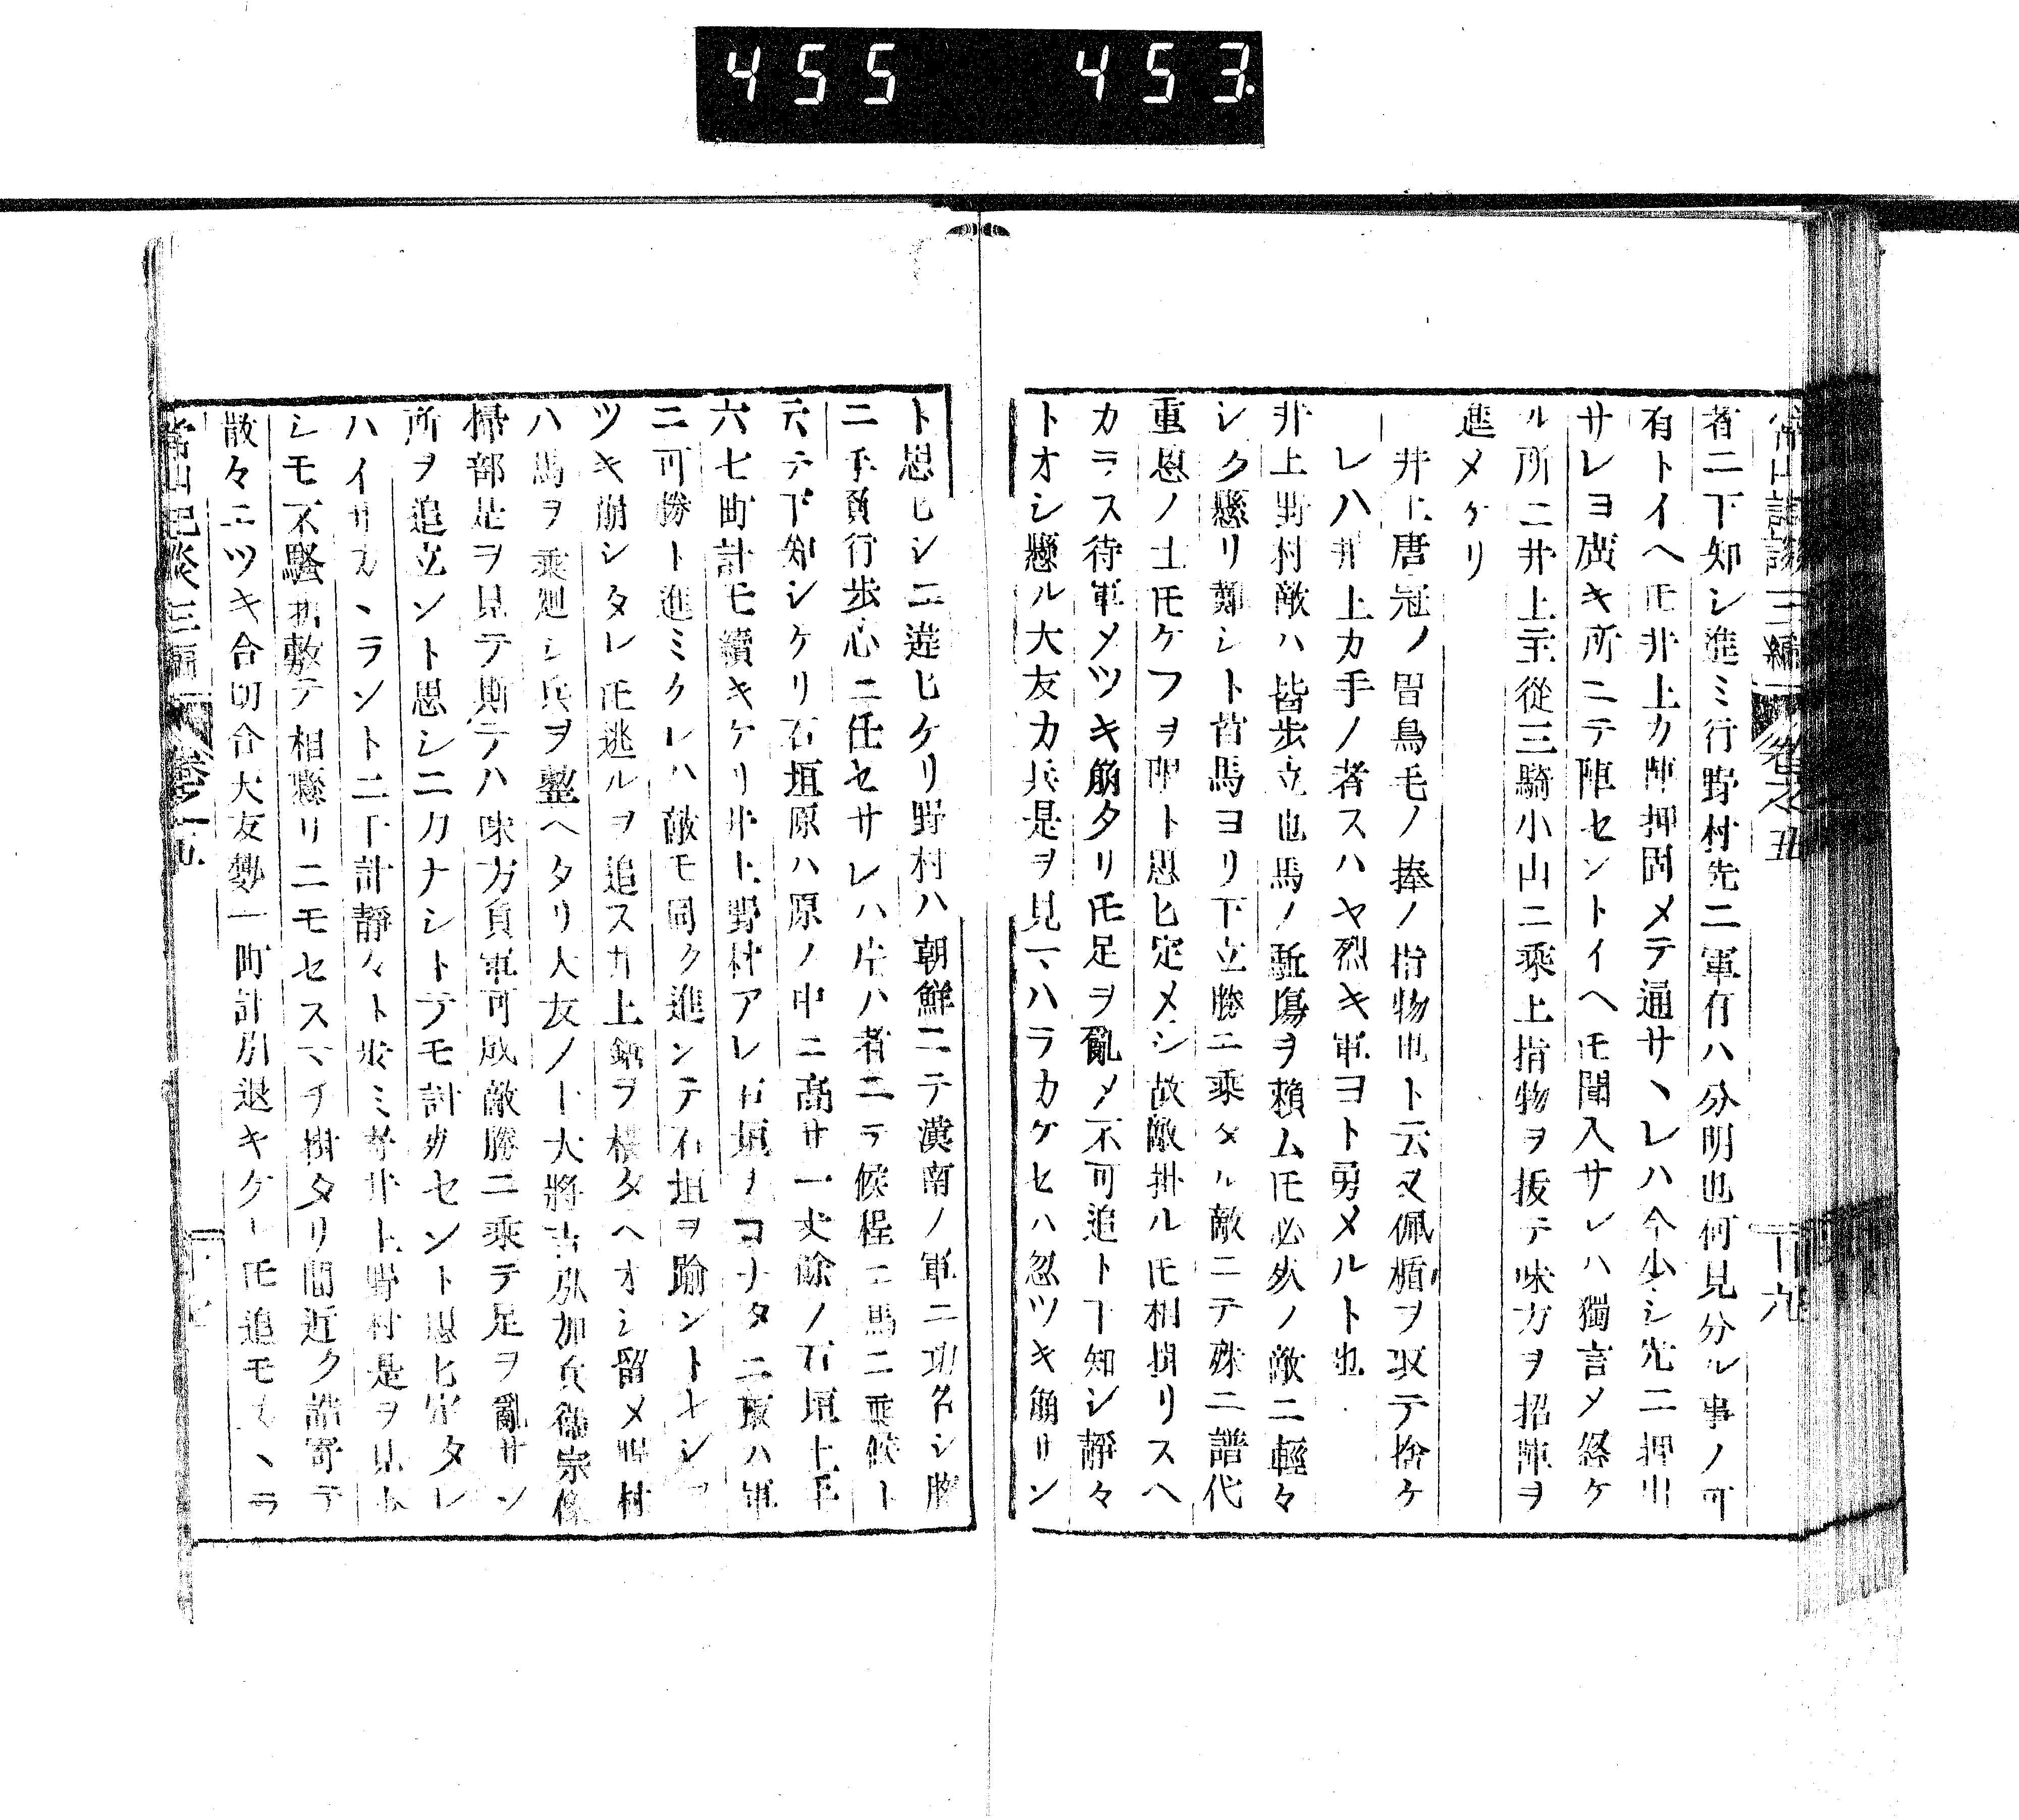 455 453
常山記談三編 卷之五
者ニ下知シ進ミ行野村先ニ軍有ハ分明也何見分ル事ノ可
有トイヘ𪜈井上カ陣押固メテ通サヽレハ今少シ先ニ押出
サレヨ廣キ所ニテ陣セントイヘ𪜈聞入サレハ獨言メ怒ケ
ル所ニ井上主從三騎小山ニ乘上指物ヲ拔テ味方ヲ招陣ヲ
進メケリ
井上唐冠ノ冑鳥毛ノ捧ノ指物也ト云又佩楯ヲ取テ捨ケ
レハ井上カ手ノ者スハヤ烈キ軍ヨト勇メルト也
井上野村敵ハ皆歩立也馬ノ駈塲ヲ賴ム𪜈必死ノ敵ニ輕々
シク懸リ難シト皆馬ヨリ下立勝ニ乘タル敵ニテ殊ニ譜代
重恩ノ士𪜈ケフヲ限ト思ヒ定メシ故敵掛ル𪜈相掛リスヘ
カラス待軍メツキ崩タリ𪜈足ヲ亂メ不可追ト下知シ靜々
トオシ懸ル大友カ兵是ヲ見一ハラカケセハ忽ツキ崩サン
ト思ヒシニ違ヒケリ野村ハ朝鮮ニテ漢南ノ軍ニ功名シ勝
ニ手負行歩心ニ任セサレハ片ハ者ニテ候程ニ馬ニ乘候ト
云テ下知シケリ石垣原ハ原ノ中ニ高サ一丈餘ノ石垣土手
六七町計モ續キケリ井上野村アレ石垣ノコナタニ扣ハ軍
ニ可勝ト進ミクレハ敵モ同ク進ンテ石垣ヲ踰ントセシヲ
ツキ崩シタレ𪜈逃ルヲ追スサ上鎗ヲ横タヘオシ留メ野村
ハ馬ヲ乘廻シ兵ヲ整ヘタリ大友ノ士大將吉弘加兵衞宗像
掃部是ヲ見テ斯テハ味方負軍可成敵勝ニ乘テ足ヲ亂サン
所ヲ追立ント思シニ力ナシトテモ討死セント思ヒ定タレ
ハイサカヽラント二千計靜々ト歩ミ寄井上野村是ヲ見少
シモ不騷折敷テ相懸リニモセスマチ掛タリ間近ク詰寄テ
散々ニツキ合切合大友勢一町計引退キケレ𪜈追モカヽラ
常山記談三編 卷之五